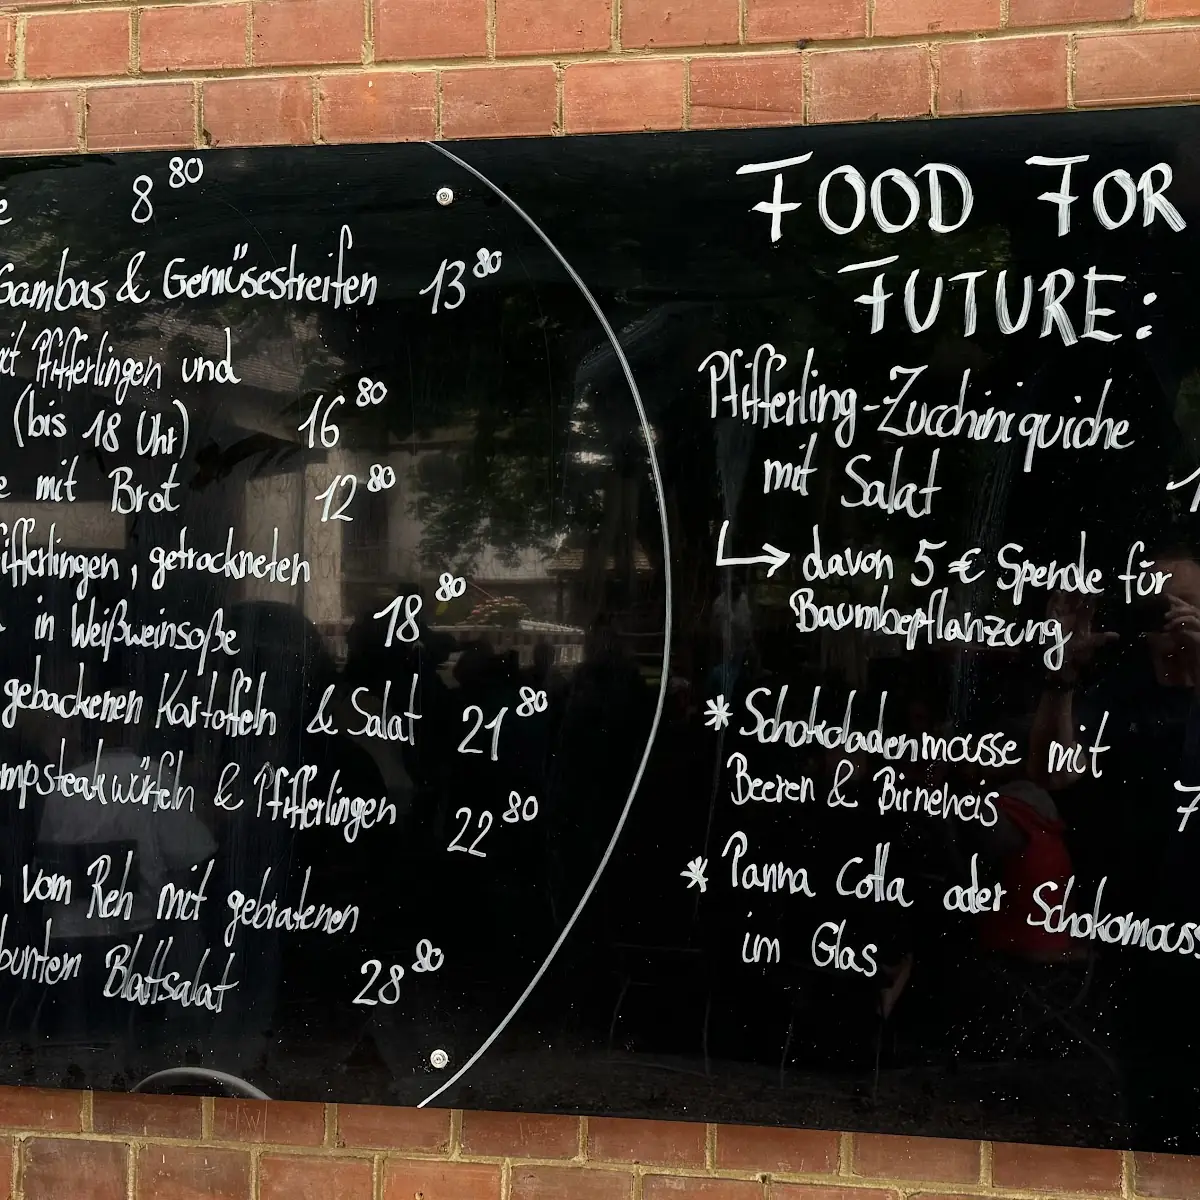 8 80
Gambas & Gemüsestreifen 13 80
Pfifferlingen und
(bis 18 Uhr) 16 80
mit Brot 12 80
getrockneten
in Weißweinsoße 18 80
gebackenen Kartoffeln & Salat 21 80
& Pfifferlingen 22 80
vom Reh mit gebratenen
Blattsalat 28 80
FOOD FOR
FUTURE:
Pfifferling-Zucchiniquiche
mit Salat
↳ davon 5 € Spende für
Baumbepflanzung
* Schokoladenmousse mit
Beeren & Birneneis 7
* Panna Cotta oder
im Glas